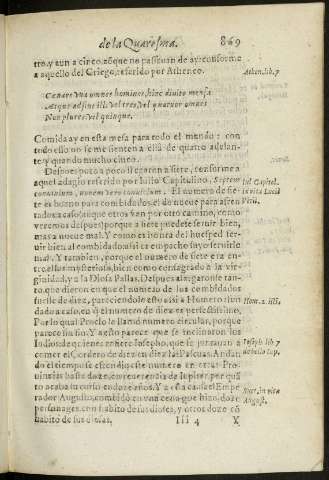 de la Quaresma. 869
tro, y aun a cinco, aũque no passauan de ay: conforme
a aquello del Griego, referido por Atheneo.
Athen. lib. 7
Cœnare vna omnes homines, hinc diuite mensa
Atque adsint illi, vel tres, vel quatuor omnes
Non plures, vel quinque.
Comida ay en esta mesa para todo el mundo: con
todo esso no se me sienten a ella de quatro adelan-
te, y quando mucho cinco.
Despues poco a poco llegaron a siete, conforme a
aquel adagio referido por Iulio Capitolino, Septem
conuiuium, nouem vero conuitium. El numero de sie-
te es bueno para combidados: el de nueue para
Iul. Capitol.
in vita Lucii
Veri.
rados a caso (aũque otros van por otro camino, como
veremos despues) porque a siete puedese seruir bien,
mas a nueue mal. Y como es honra del huesped ser-
uir bien al combidado: assi es empacho suyo seruirle
mal. Y tambien, porque el numero de siete era en-
tre ellos mysterioso, bien como consagrado a la vir-
ginidad, y a la Diosa Pallas. Despues alargaronse tan-
to, que dizen que el numero de los combidados
fuesse de diez, pareciendole esto assi a Homero
Hom. 2. Ilia.
dado a caso, en el numero de diez es perfectissimo.
Por lo qual Proclo le llamó numero circular, porque
parece sin fin. Y a esto parece que se inclinaron los
Iudios, de quienes refiere Iosepho, que se juntauan a
Ioseph. lib. 7
de bello
comer el Cordero de diez en diez las Pascuas. Andan
do el tiempo se estendio este numero en otras Pro-
uincias hasta doze, en reuerencia de Iupiter, porque
to acaba su curso en doze años. Y a esta causa el Empe-
rador Augusto, combidó en vna cena que hizo, doze
Suet. in vita
August.
personages con habito de sus dioses, y otros doze cõ
habito de sus diosas.
Iii 4 Y